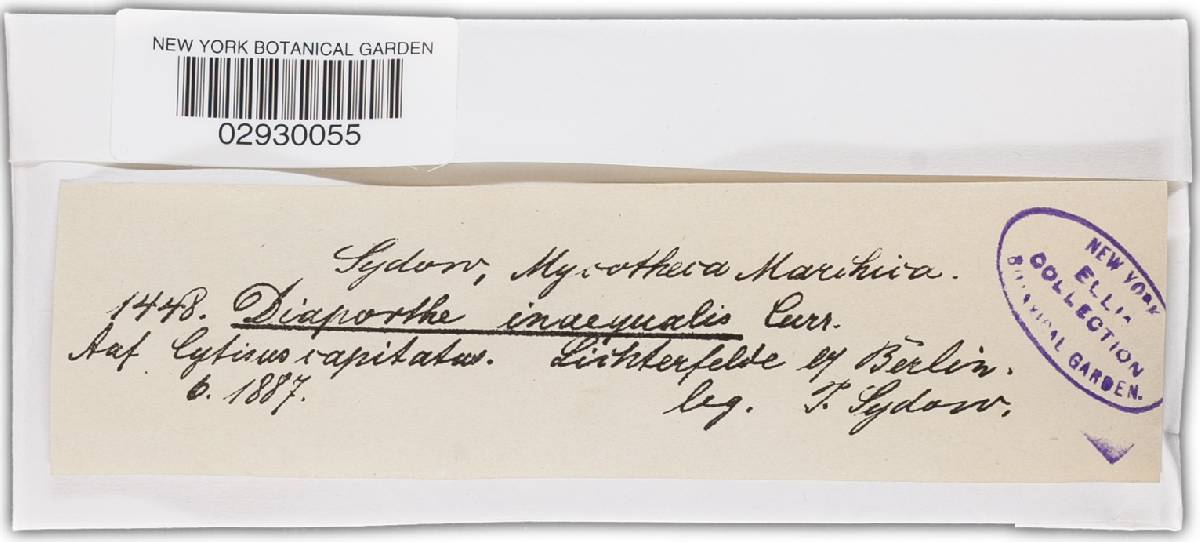 NEW YORK BOTANICAL GARDEN
02930055
Sydow, Mycotheca Marchica.
1448. Diaporthe inaequalis Curr.
Auf Cytisus capitatus. Lichterfelde b/ Berlin.
6. 1887. leg. P. Sydow.
NEW YORK
ELLIS
COLLECTION
BOTANICAL GARDEN.